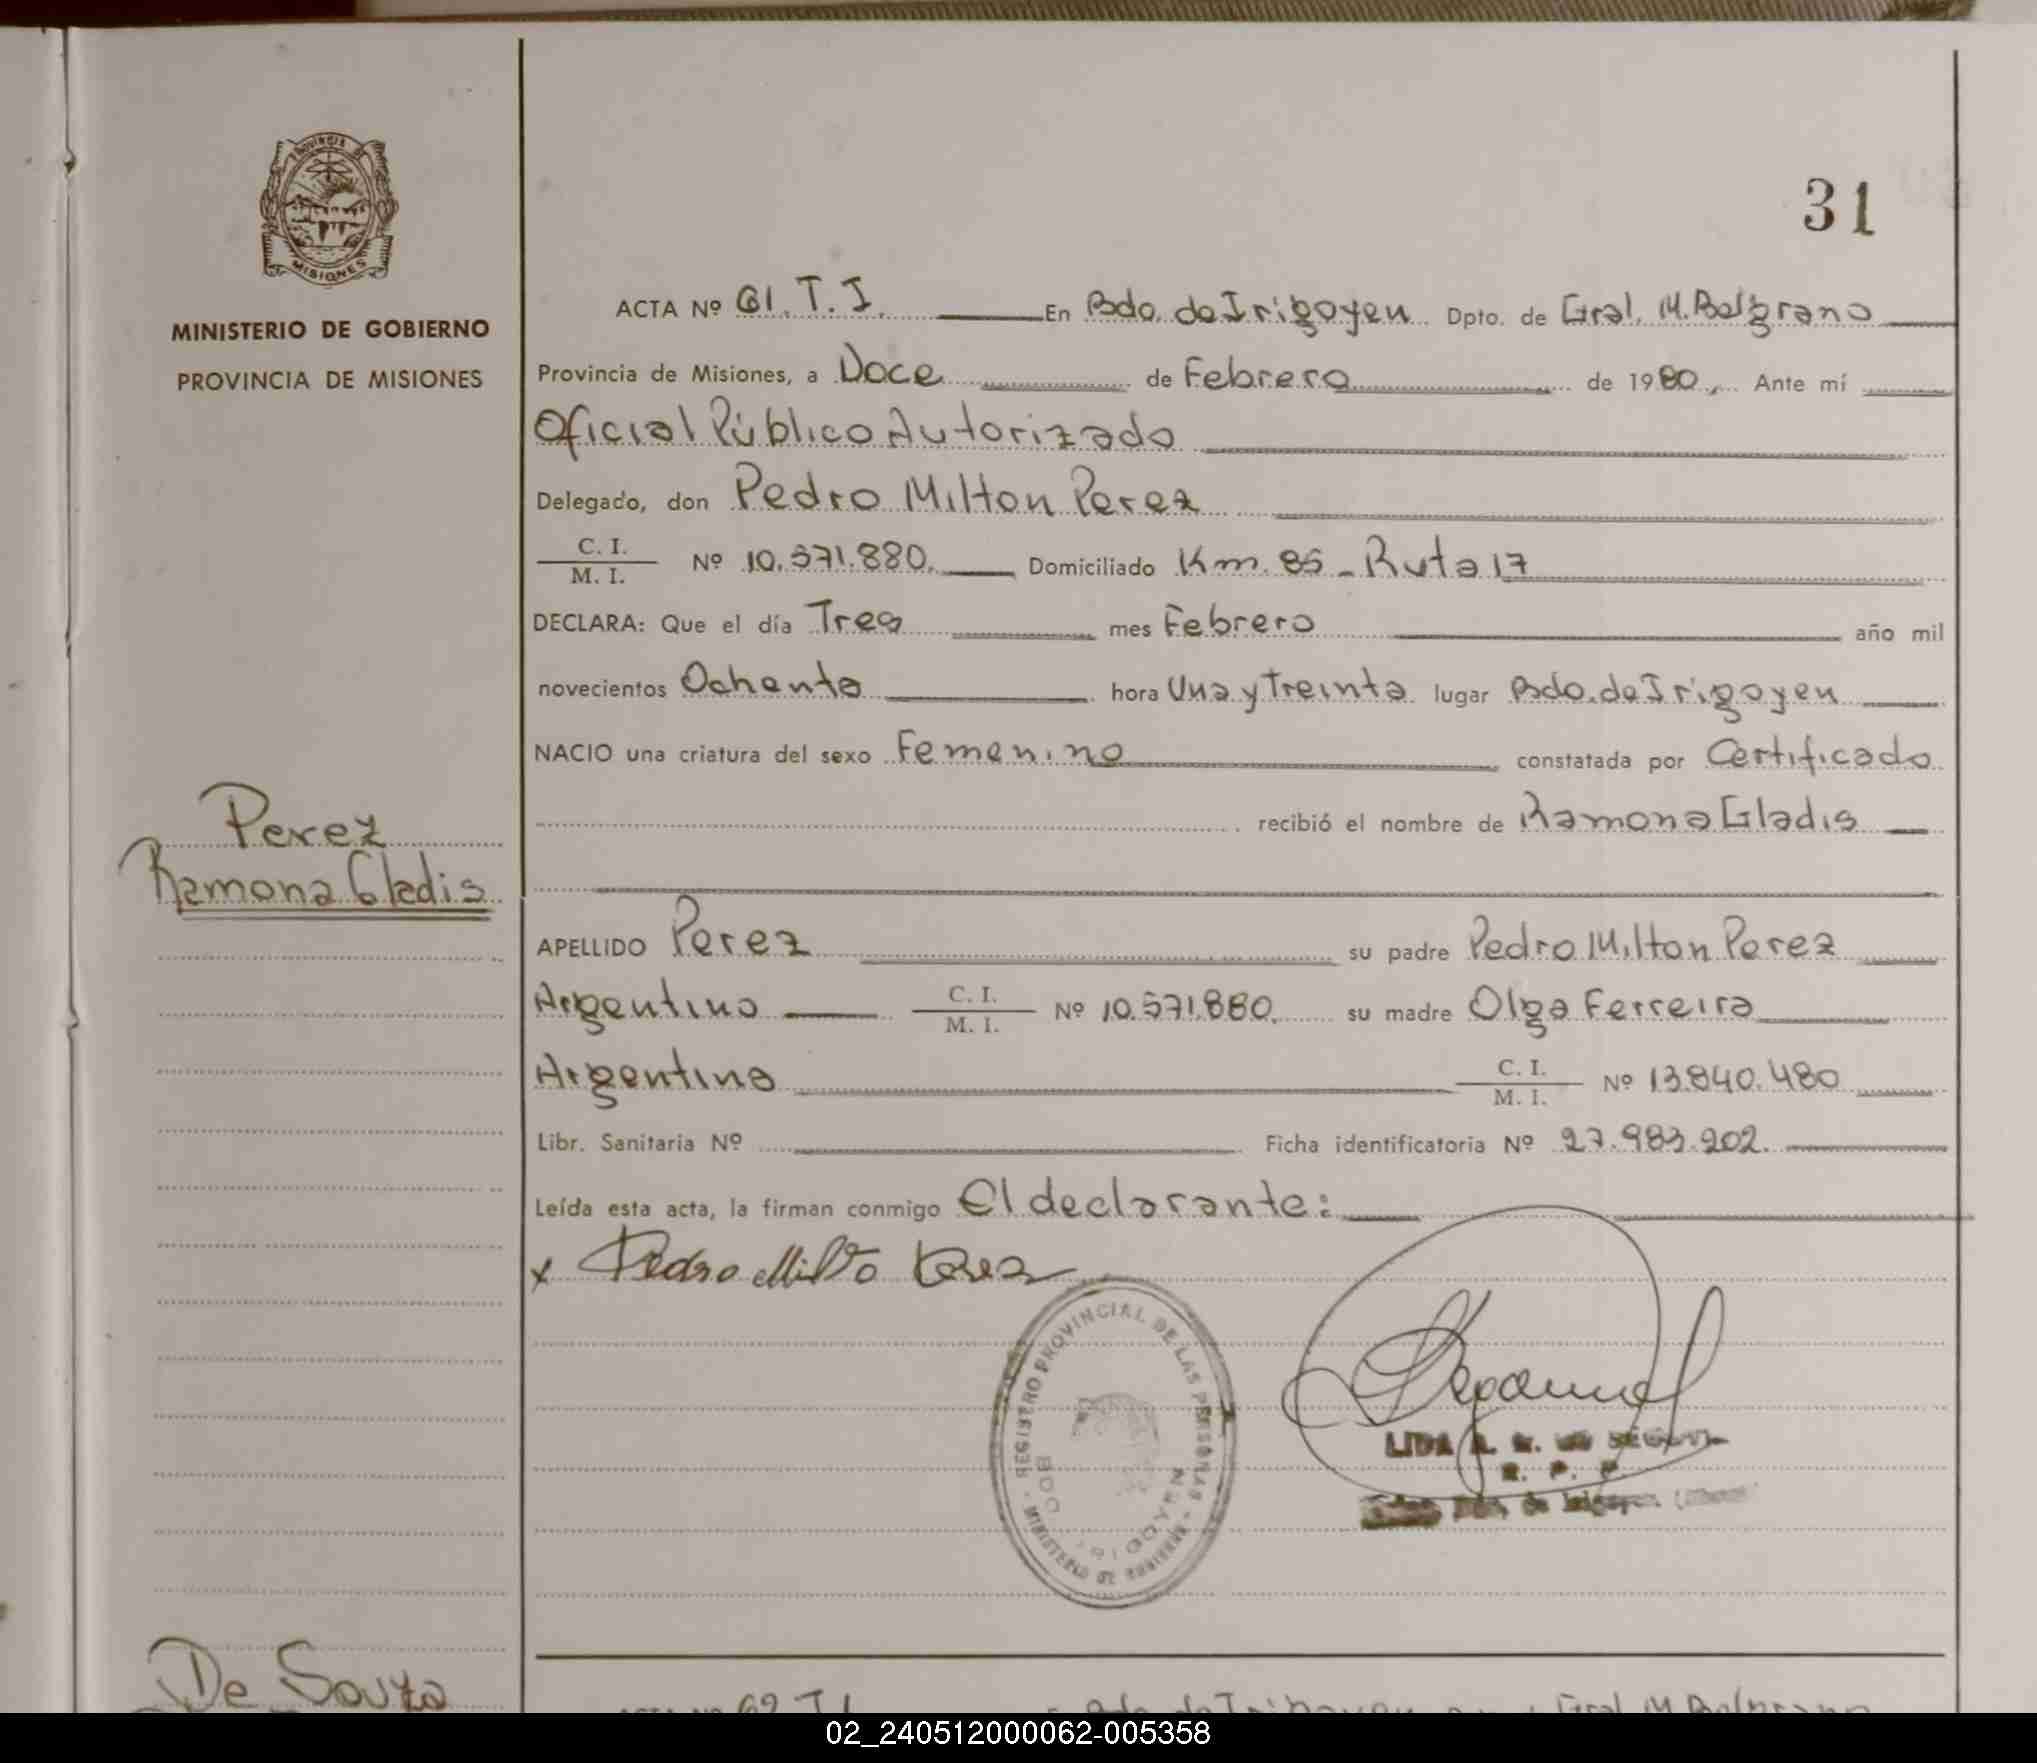 31
PROVINCIA DE
MISIONES
MINISTERIO DE GOBIERNO
PROVINCIA DE MISIONES
ACTA Nº 61. T. I. En Bdo. de Irigoyen Dpto. de Gral. M. Belgrano
Provincia de Misiones, a Doce de Febrero de 1980, Ante mí
Oficial Público Autorizado
Delegado, don Pedro Milton Perez
C. I.
M. I. Nº 10.571.880. Domiciliado Km. 85 - Ruta 17
DECLARA: Que el día Tres mes Febrero año mil
novecientos Ochenta hora Una y Treinta lugar Bdo. de Irigoyen
NACIO una criatura del sexo Femenino constatada por Certificado
recibió el nombre de Ramona Gladis
Perez
Ramona Gladis
APELLIDO Perez su padre Pedro Milton Perez
Argentino C. I.
M. I. Nº 10.571.880. su madre Olga Ferreira
Argentina C. I.
M. I. Nº 13.840.480
Libr. Sanitaria Nº Ficha identificatoria Nº 27.983.202.
Leída esta acta, la firman conmigo El declarante:
x Pedro Milto Perez
REGISTRO PROVINCIAL DE LAS PERSONAS - MINISTERIO DE GOBIERNO -
BDO. IRIGOYEN
LIDA
R. P. P.
Bdo. de Irigoyen
De Souza
ACTA Nº 62 T I Bdo. de Irigoyen Gral. M. Belgrano
02_240512000062-005358